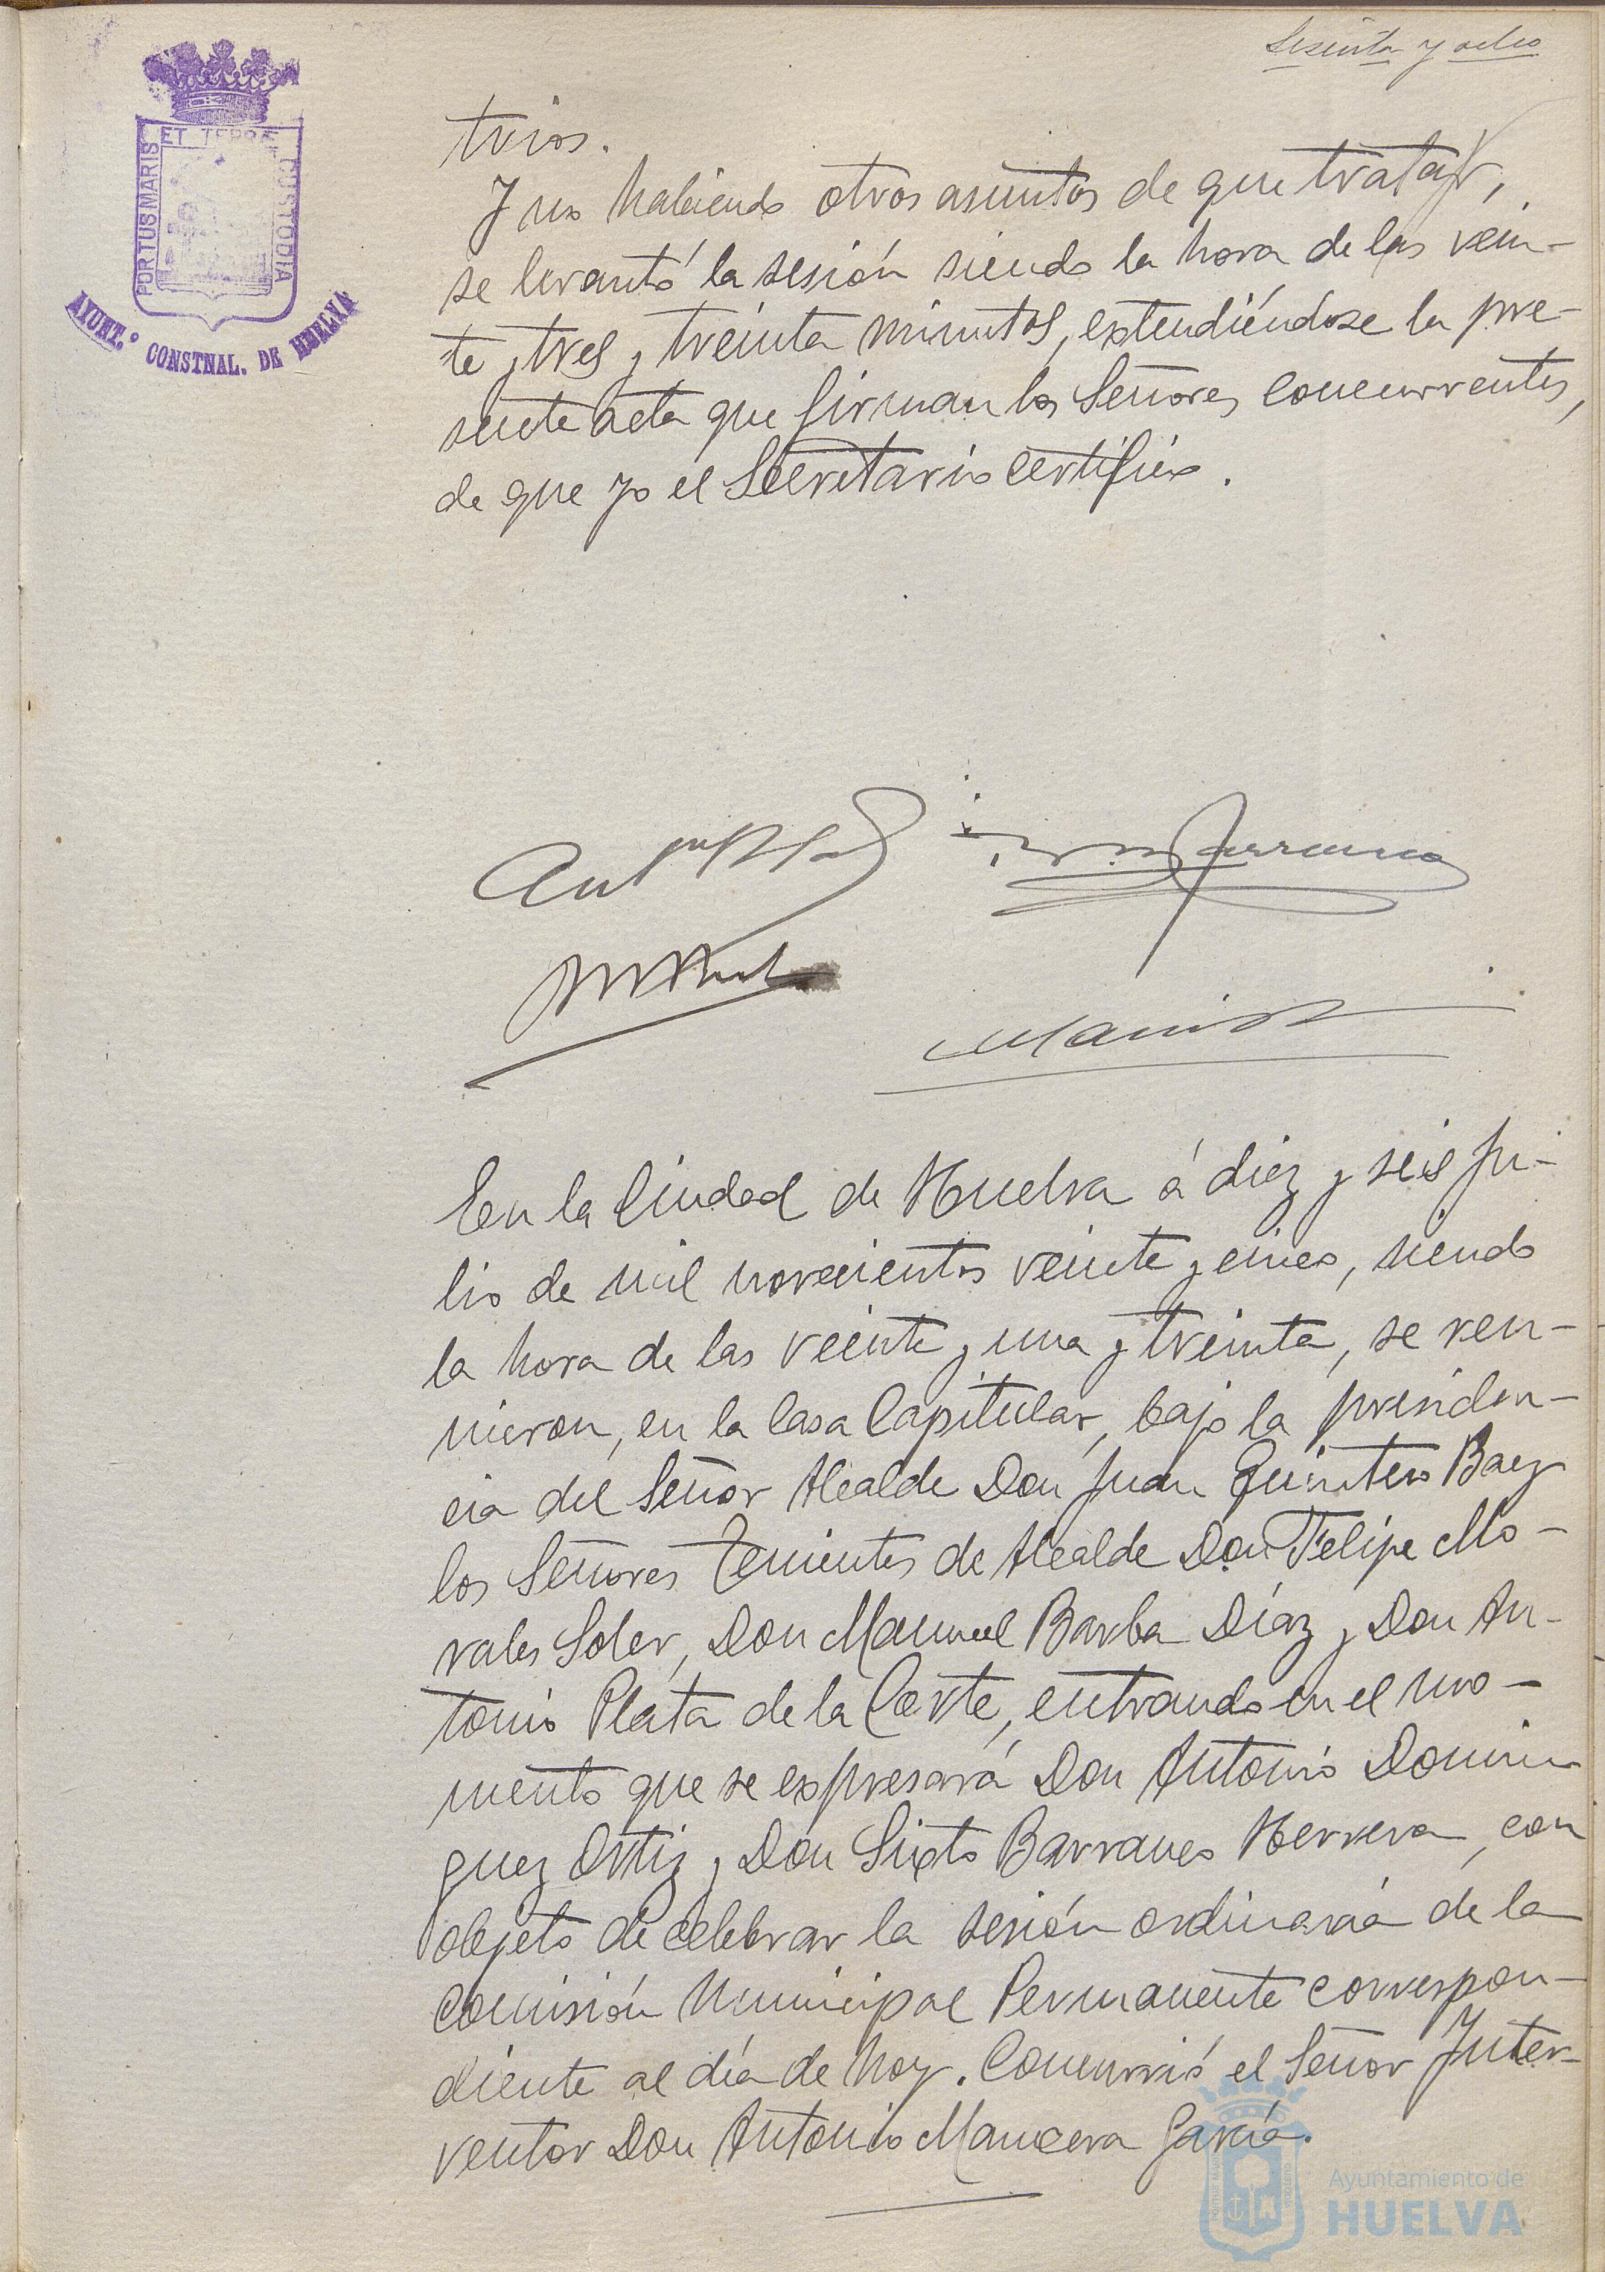 Sesenta y ocho
ET TERRÆ
PORTUS MARIS
CUSTODIA
AYUNT.º CONSTNAL. DE HUELVA
trios.
Y no habiendo otros asuntos de que tratar,
se levantó la sesión siendo la hora de las vein-
te y tres y treinta minutos, extendiéndose la pre-
sente acta que firman los Señores concurrentes,
de que yo el Secretario certifico.
En la Ciudad de Huelva á diez y seis Ju-
lio de mil novecientos veinte y cinco, siendo
la hora de las veinte y una y treinta, se reu-
nieron, en la Casa Capitular, bajo la presiden-
cia del Señor Alcalde Don Juan Quintero Baez
los Señores Tenientes de Alcalde Don Felipe Mo-
rales Soler, Don Manuel Barba Díaz y Don An-
tonio Plata de la Corte, entrando en el mo-
mento que se expresará Don Antonio Domin
guez Ortiz y Don Sixto Barranco Herrera, con
objeto de celebrar la sesión ordinaria de la
Comisión Municipal Permanente correspon-
diente al día de hoy. Concurrió el Señor Inter-
ventor Don Antonio Mancera García.
Ayuntamiento de
HUELVA